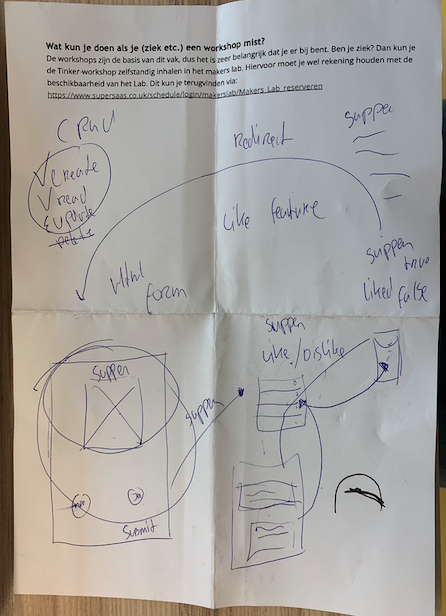 Wat kun je doen als je (ziek etc.) een workshop mist?
De workshops zijn de basis van dit vak, dus het is zeer belangrijk dat je er bij bent. Ben je ziek? Dan kun je
de Tinker-workshop zelfstandig inhalen in het makers lab. Hiervoor moet je wel rekening houden met de
beschikbaarheid van het Lab. Dit kun je terugvinden via:
https://www.supersaas.co.uk/schedule/login/makerslab/Makers_Lab_reserveren
CRUD
create
read
update
delete
Redirect
supper
like feature
html
form
supper
true
liked false
supper
like/dislike
supper
supper
nee
Ja
submit